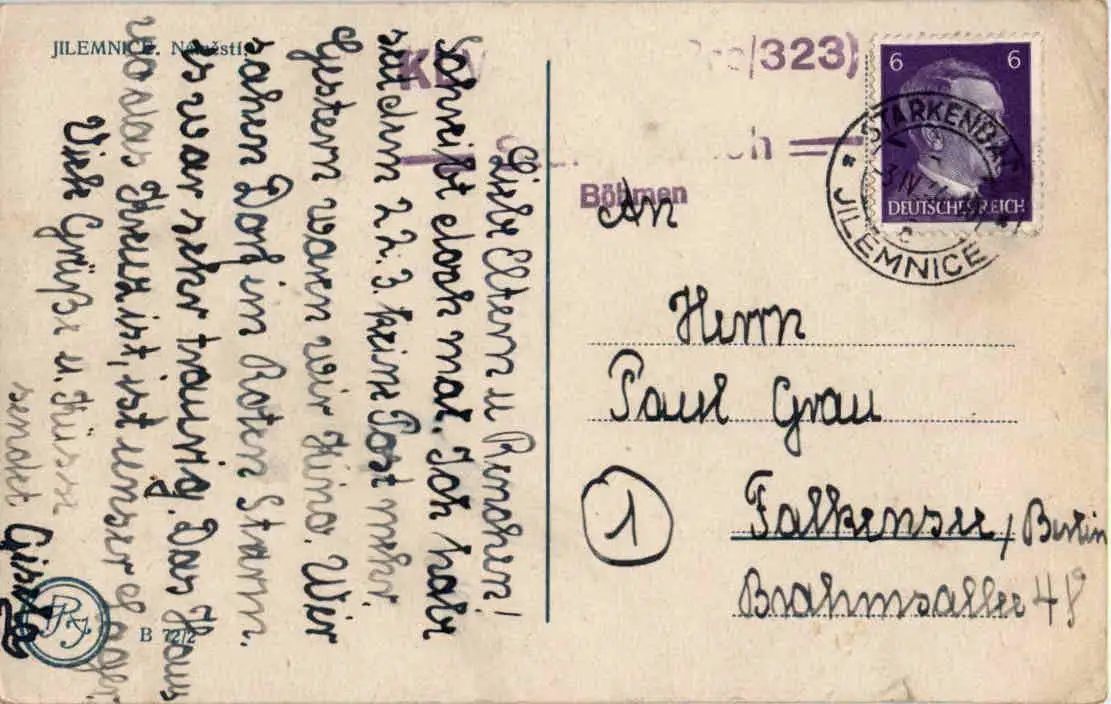 JILEMNICE. Náměstí.
KLV
/323)
Böhmen
6 6
DEUTSCHES REICH
STARKENBACH
JILEMNICE
Liebe Eltern u Renchen!
Schreibt doch mal. Ich habe
seit dem 22.3. keine Post mehr
Gestern waren wir Kino. Wir
sahen Dorf im Roten Sturm.
es war sehr traurig. Das Haus
wo das Kreuz ist, ist unser Lager
Viele Grüße u. Küsse
sendet
Gisela
An
Herrn
Paul Grau
1
Falkensee / Berlin
Brahmsallee 48
B 72/2